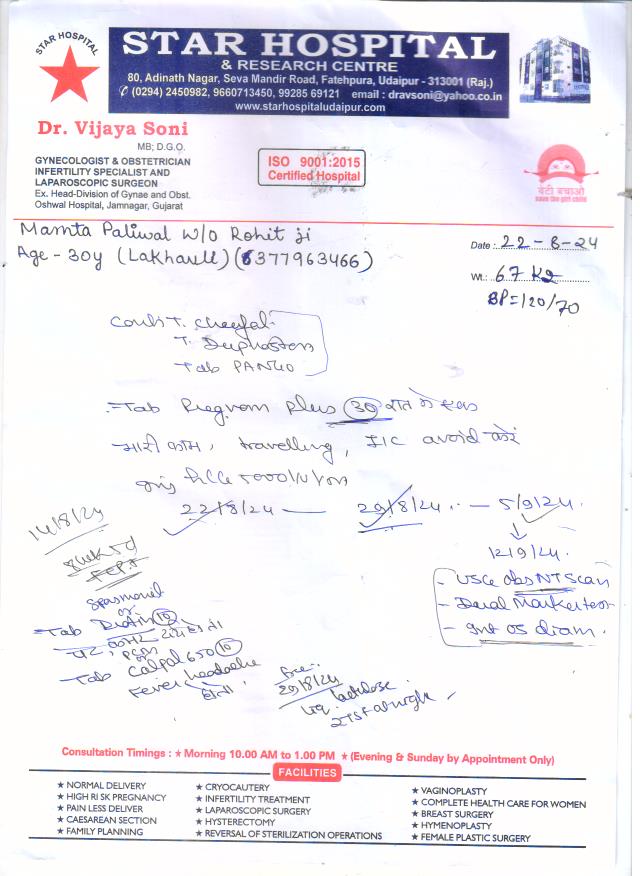 STAR HOSPITAL
STAR HOSPITAL
& RESEARCH CENTRE
80, Adinath Nagar, Seva Mandir Road, Fatehpura, Udaipur - 313001 (Raj.)
(0294) 2450982, 9660713450, 99285 69121 email : dravsoni@yahoo.co.in
www.starhospitaludaipur.com
Dr. Vijaya Soni
MB; D.G.O.
GYNECOLOGIST & OBSTETRICIAN
INFERTILITY SPECIALIST AND
LAPAROSCOPIC SURGEON
Ex. Head-Division of Gynae and Obst.
Oshwal Hospital, Jamnagar, Gujarat
ISO 9001:2015
Certified Hospital
बेटी बचाओ
save the girl child
Mamta Paliwal W/O Rohit Ji
Age - 30y (6377963466)
Date : 22-8-24
Wt.: 67 Kg
BP = 120/70
T.
T.
Tab PAN40
Tab plus 30
भारी काम, travelling, I/C avoid करें
5000
22/8/24 — 29/8/24 — 5/9/24
12/9/24
- USG obs NT Scan
- Dual Marker test
14/8/24
Tab 10
Tab Calpol 650 10
Fever headache
29/8/24
at night
Consultation Timings : ★ Morning 10.00 AM to 1.00 PM ★ (Evening & Sunday by Appointment Only)
FACILITIES
★ NORMAL DELIVERY
★ HIGH RI SK PREGNANCY
★ PAIN LESS DELIVER
★ CAESAREAN SECTION
★ FAMILY PLANNING
★ CRYOCAUTERY
★ INFERTILITY TREATMENT
★ LAPAROSCOPIC SURGERY
★ HYSTERECTOMY
★ REVERSAL OF STERILIZATION OPERATIONS
★ VAGINOPLASTY
★ COMPLETE HEALTH CARE FOR WOMEN
★ BREAST SURGERY
★ HYMENOPLASTY
★ FEMALE PLASTIC SURGERY